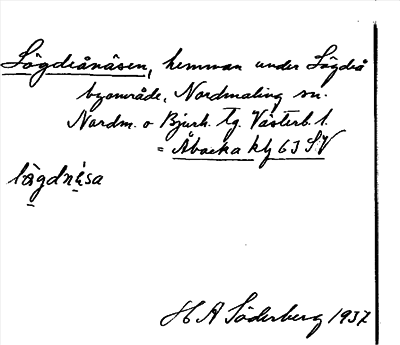 Lögdeånäsen, hemman under Lögdeå
byområde, Nordmaling sn.
Nordm. o Bjurh. tg. Västerb. l.
= Åbacka kbl 63 SV
lö̀gdnä́sa
H A Söderberg 1937